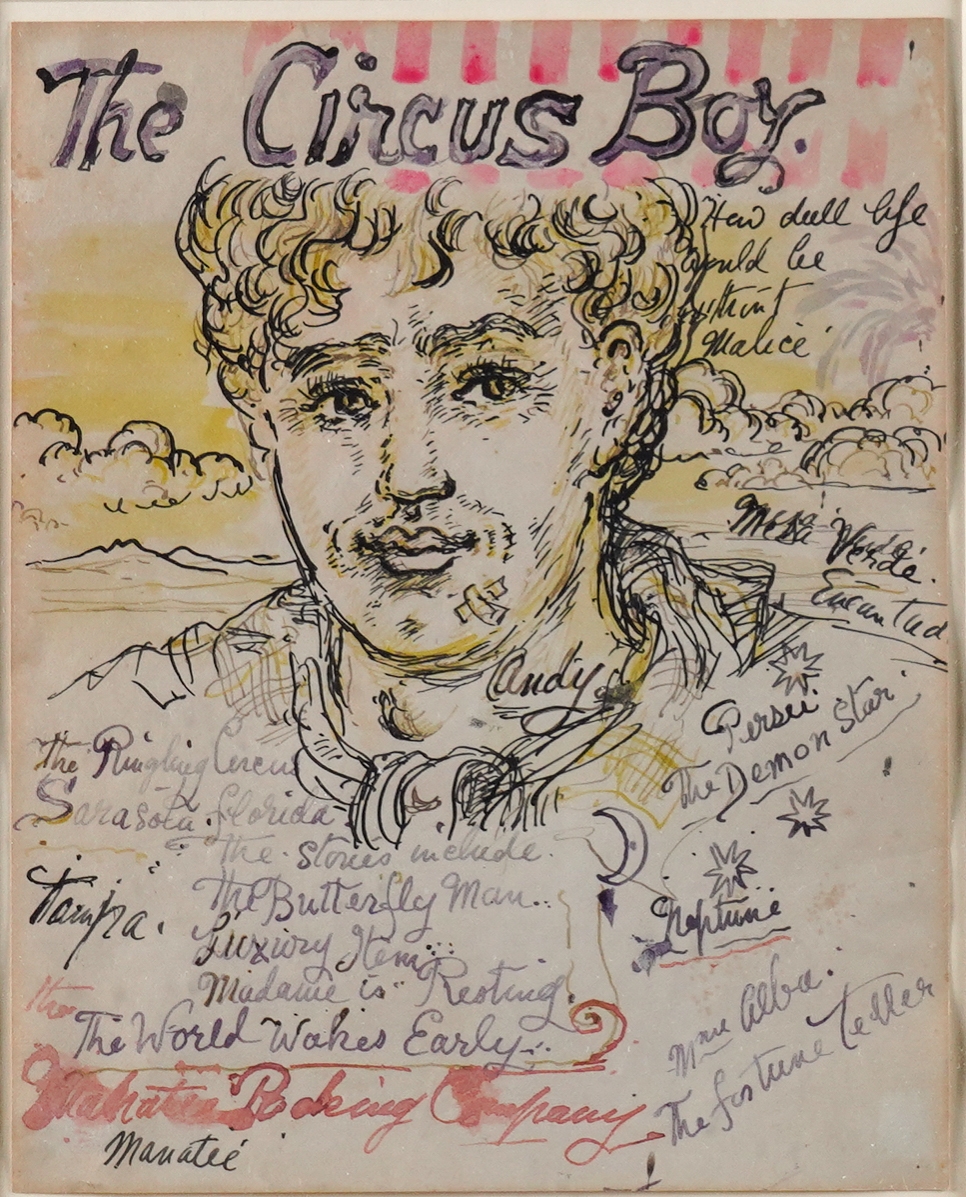 The Circus Boy.
How dull life
would be
without
Malice
Mesa Verde.
Andy
Persei
The Demon Star
The Ringling Circus
Sarasota. Florida
The stories include.
The Butterfly Man..
Tampa.
Luxury Item...
Neptune
Madame is Resting.
the
The World Wakes Early..
Mme Alba.
The fortune teller
Packing Company
Manateé